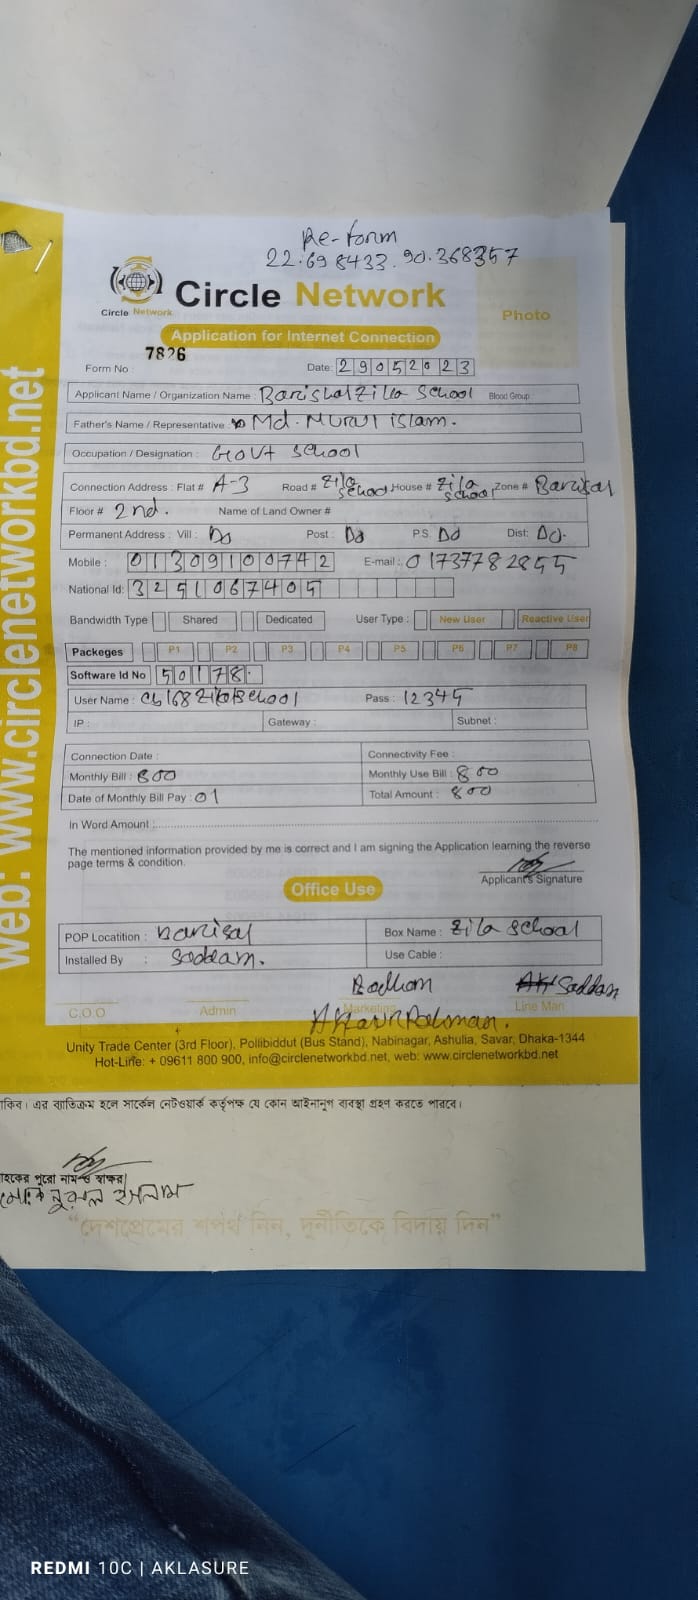 Re-form
22.698433.90.368357
Circle Network
Circle Network
Photo
Application for Internet Connection
7826
Form No : Date: 29052023
Applicant Name / Organization Name : Barishal Zilla School Blood Group
Father's Name / Representative : Md. Nurul islam.
Occupation / Designation : Govt School
Connection Address : Flat # A-3 Road # Zila School House # Zila School Zone # Barisal
Floor # 2nd. Name of Land Owner #
Permanent Address : Vill : Do Post : Do P.S. Do Dist: Do.
Mobile : 01309100742 E-mail : 01737782855
National Id: 3251067405
Bandwidth Type Shared Dedicated User Type : New User Reactive User
Packeges P1 P2 P3 P4 P5 P6 P7 P8
Software Id No 50178.
User Name : Pass : 12345
IP : Gateway : Subnet :
Connection Date : Connectivity Fee :
Monthly Bill : 800 Monthly Use Bill : 800
Date of Monthly Bill Pay : 01 Total Amount : 800
In Word Amount :
The mentioned information provided by me is correct and I am signing the Application learning the reverse
page terms & condition.
Applicant's Signature
Office Use
POP Locatition : Barisal Box Name : Zila School
Installed By : Saddam. Use Cable :
Saddam
C.O.O Admin Marketing Line Man
Unity Trade Center (3rd Floor), Pollibiddut (Bus Stand), Nabinagar, Ashulia, Savar, Dhaka-1344
Hot-Line: + 09611 800 900, info@circlenetworkbd.net, web: www.circlenetworkbd.net
web: www.circlenetworkbd.net
এর ব্যাতিক্রম হলে সার্কেল নেটওয়ার্ক কর্তৃপক্ষ যে কোন আইনানুগ ব্যবস্থা গ্রহণ করতে পারবে।
পুরো নাম ও স্বাক্ষর
নুরুল ইসলাম
"দেশপ্রেমের শপথ নিন, দুর্নীতিকে বিদায় দিন"
REDMI 10C | AKLASURE